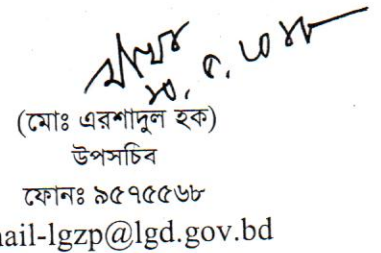 (মোঃ এরশাদুল হক)
উপসচিব
ফোনঃ ৯৫৭৫৫৬৮
ail-lgzp@lgd.gov.bd